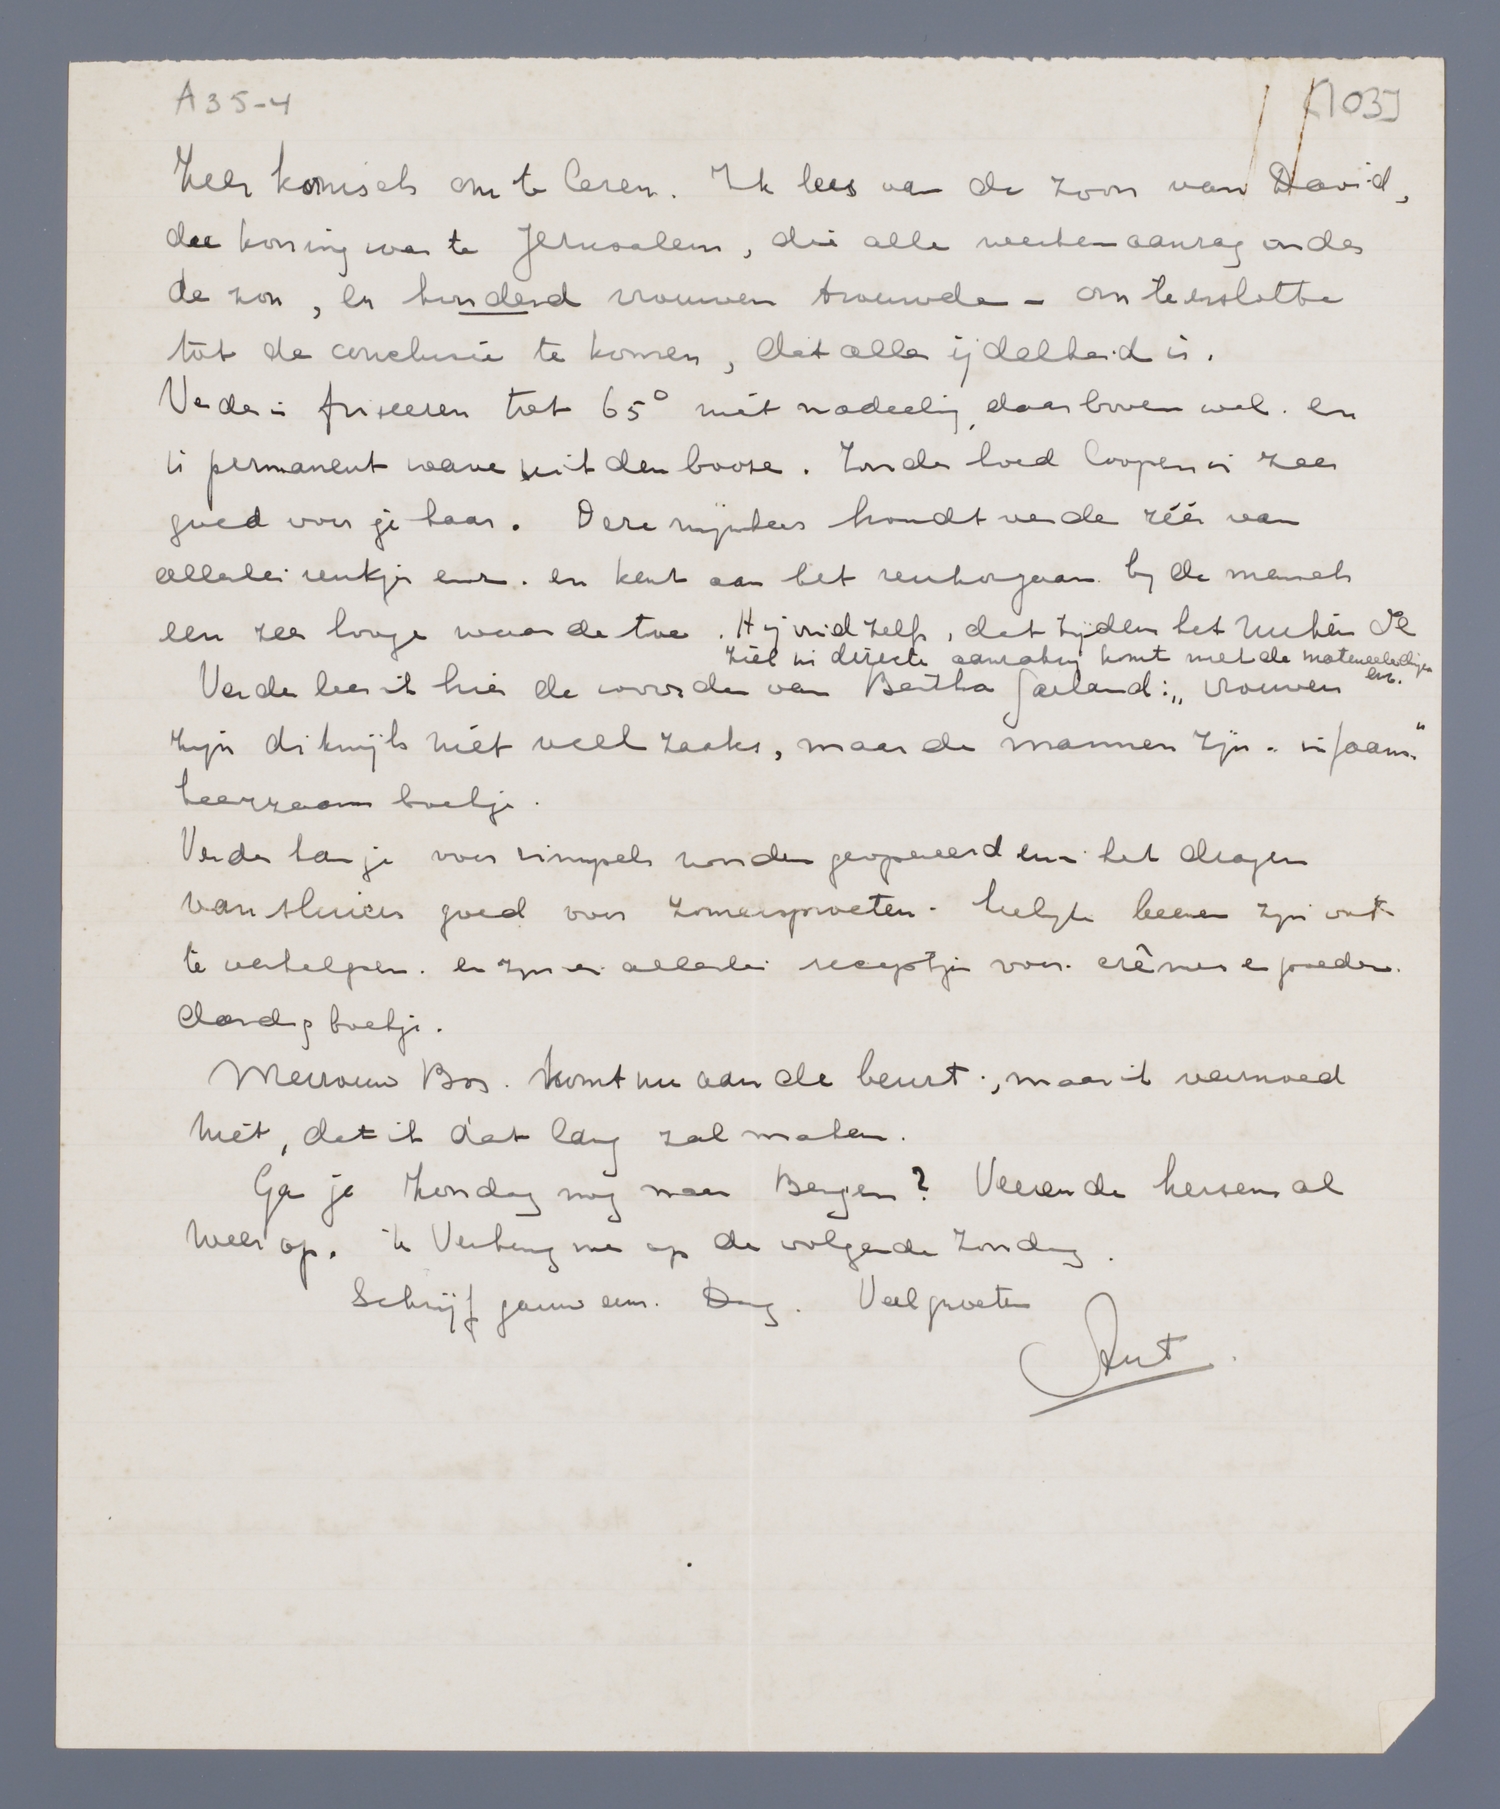 A35-4
[103]
Zeer komisch om te lezen. Ik lees van de zoon van David,
die koning was te Jeruzalem, die alle werken aanzag onder
de zon, en honderd vrouwen trouwde – om tenslotte
tot de conclusie te komen, dat alles ijdelheid is.
Verder is friseeren tot 65° niet nadeelig, daarboven wel. en
is permanent wave uit den booze. Zonder hoed loopen is zeer
goed voor je haar. Deze mijnheer houdt verder zéér van
allerlei reukjes enz. en kent aan het reukorgaan bij de mensch
een zeer hooge waarde toe. Hij vindt zelfs, dat tijdens het ruiken de
ziel in directe aanraking komt met de materieele dingen
enz.
Verder lees ik hier de woorden van Bertha Garland: „Vrouwen
zijn dikwijls niet veel zaaks, maar de mannen zijn infaam."
Leerzaam boekje.
Verder kan je voor rimpels worden geopereerd en is het dragen
van sluiers goed voor zomersproeten. Leelijke beenen zijn ook
te verhelpen. en zijn er allerlei receptjes voor crêmes en poeder.
Aardig boekje.
Mevrouw Bos komt nu aan de beurt, maar ik vermoed
niet, dat ik dat lang zal maken.
Ga je Zondag nog naar Bergen? Veeren de hersens al
weer op. ik Verheug me op de volgende Zondag.
Schrijf gauw eens. Dag. Veel groeten